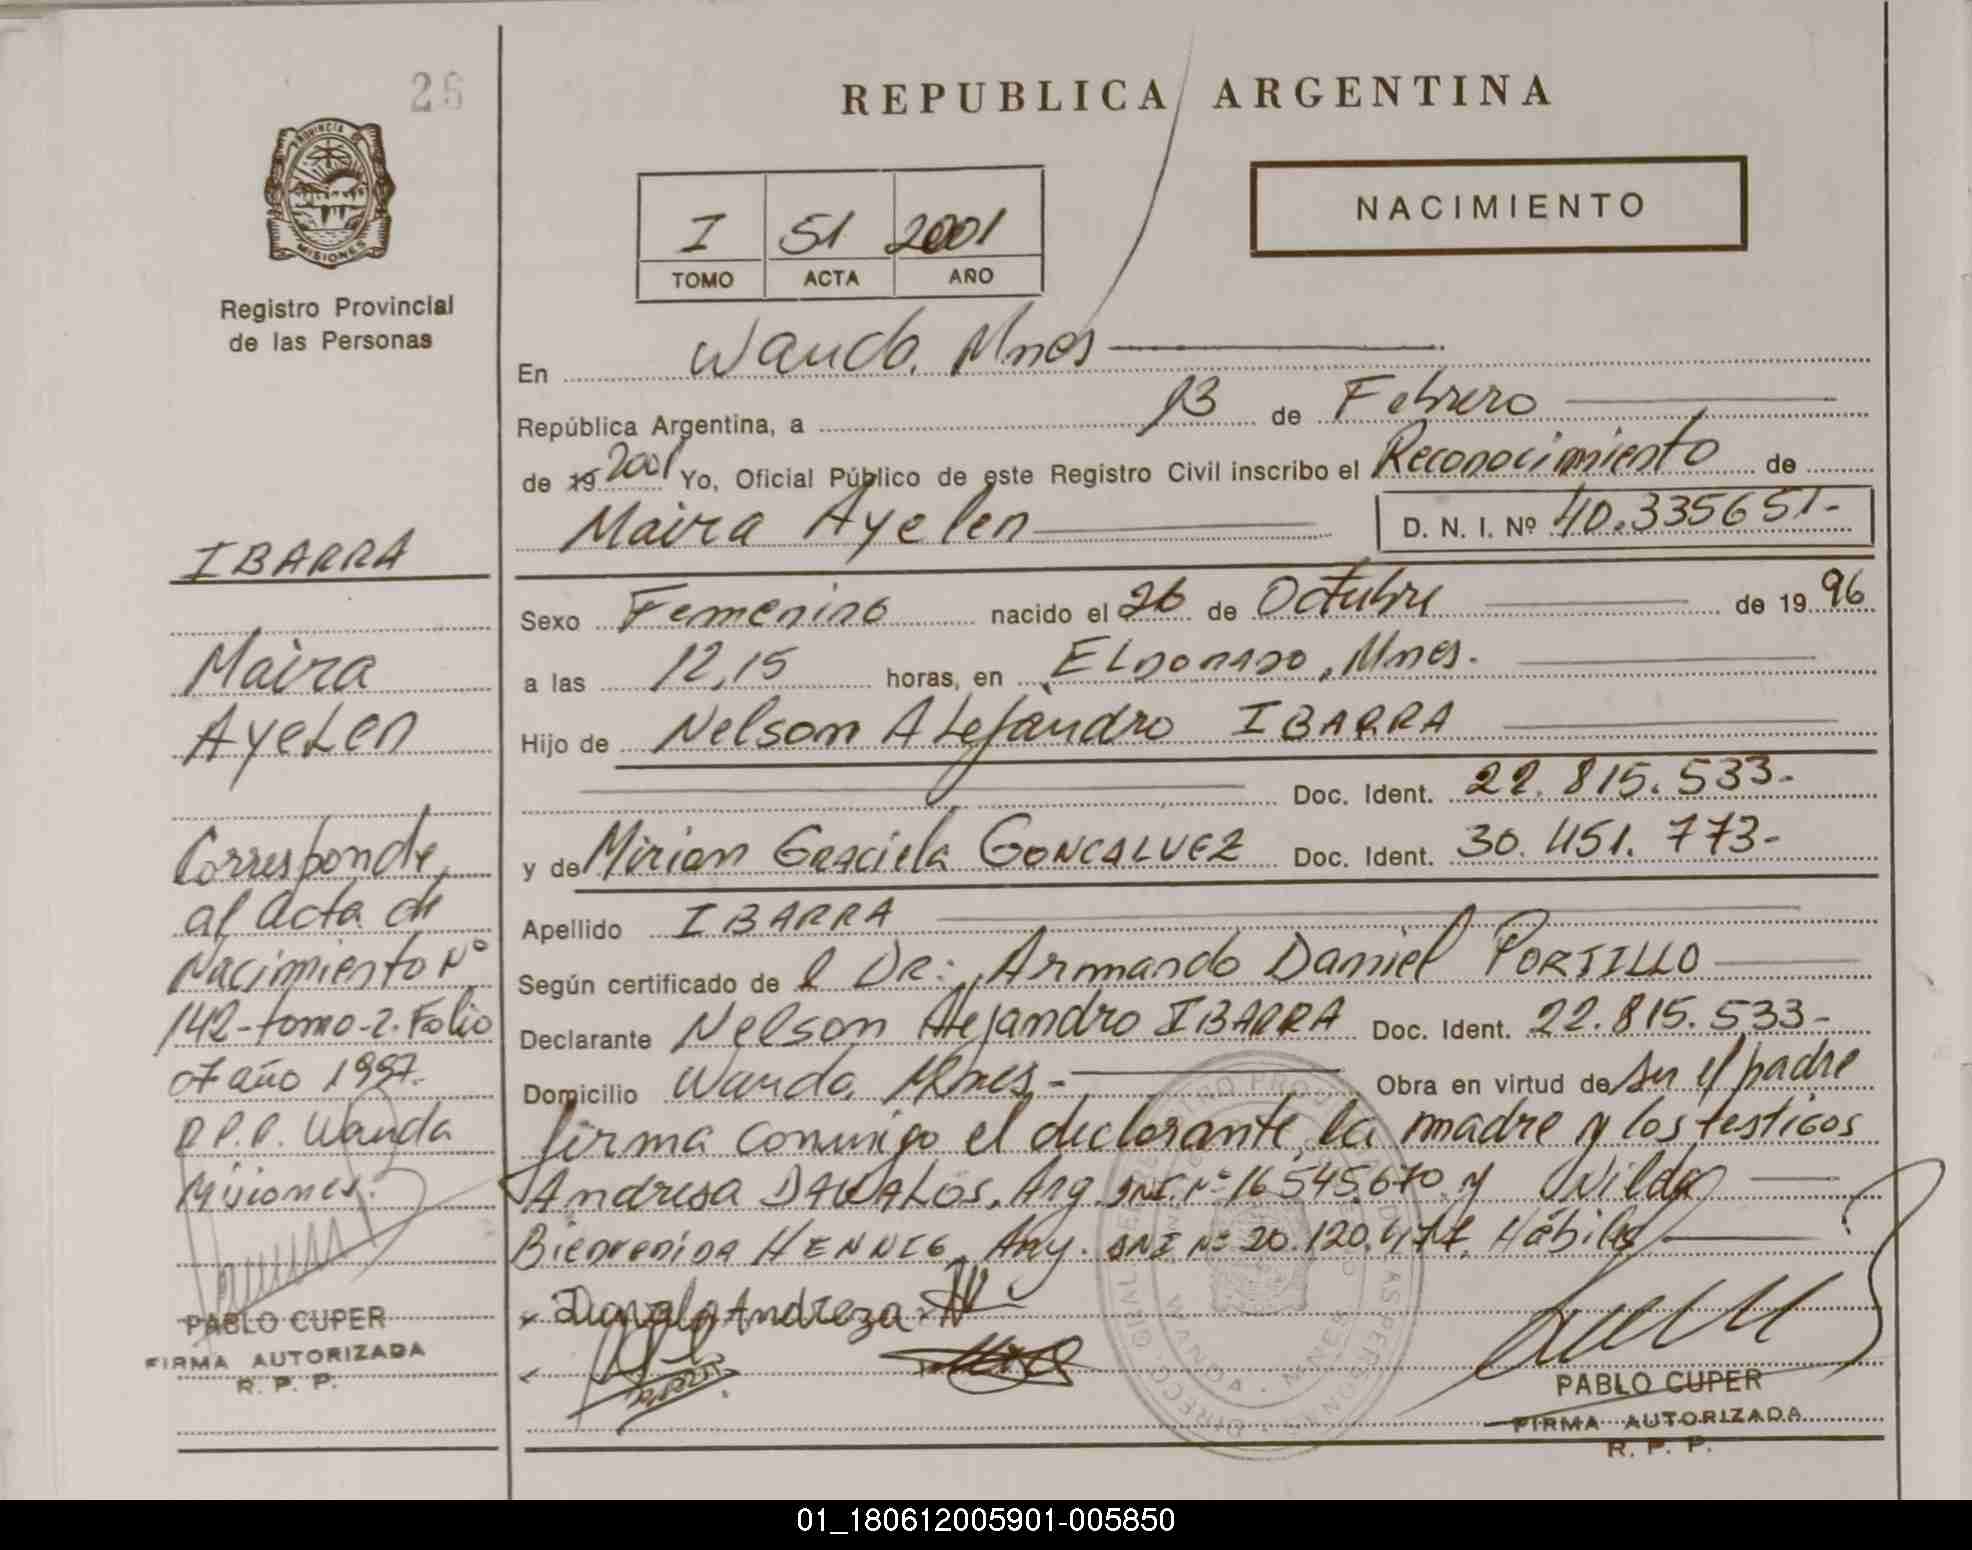 26
PROVINCIA DE
MISIONES
Registro Provincial
de las Personas
IBARRA
Maira
Ayelen
Corresponde
al acta de
Nacimiento Nº
142-tomo-2. Folio
07 año 1997.
R.P.P. Wanda
Misiones.
PABLO CUPER
FIRMA AUTORIZADA
R. P. P.
REPUBLICA ARGENTINA
I 51 2001
TOMO ACTA AÑO
NACIMIENTO
En Wanda. Mnes
República Argentina, a 13 de Febrero
de 19 2001 Yo, Oficial Público de este Registro Civil inscribo el Reconocimiento de
Maira Ayelen D. N. I. Nº 40.335651.-
Sexo Femenino nacido el 26 de Octubre de 19 96
a las 12,15 horas, en ELDORADO, Mnes.
Hijo de Nelson Alejandro IBARRA
Doc. Ident. 22.815.533-
y de Mirian Graciela GONCALVEZ Doc. Ident. 30.451.773-
Apellido IBARRA
Según certificado de l Dr: Armando Daniel PORTILLO
Declarante Nelson Alejandro IBARRA Doc. Ident. 22.815.533-
Domicilio Wanda. Mnes- Obra en virtud de ser el padre
firma conmigo el declarante, la madre y los testigos
Andresa DAVALOS, Arg. DNI. Nº 16545.670 y Nilda
Bienvenida HENNIG, Arg. DNI Nº 20.120.477, Hábiles
Davalo Andreza
PABLO CUPER
FIRMA AUTORIZADA
R. P. P.
01_180612005901-005850